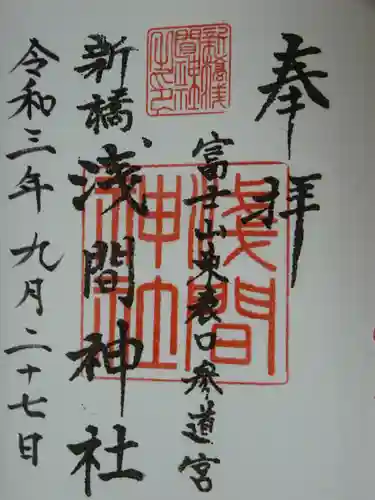 奉拝
富士山東表口参道宮
新橋浅間神社
令和三年九月二十七日
浅間
神社
新橋浅
間神社